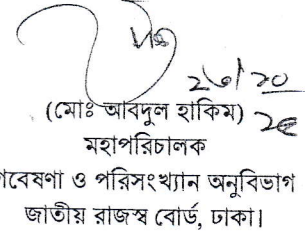 ২৬/১০
(মোঃ আবদুল হাকিম)
মহাপরিচালক
গবেষণা ও পরিসংখ্যান অনুবিভাগ
জাতীয় রাজস্ব বোর্ড, ঢাকা।